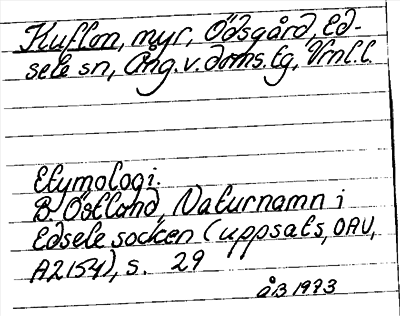 Kuflon, myr, Ödsgård, Ed-
sele sn, Ång. v. doms. tg, Vrnl. l.
Etymologi:
B Östlund, Naturnamn i
Edsele socken (uppsats, OAU,
A2154), s. 29
åB 1973